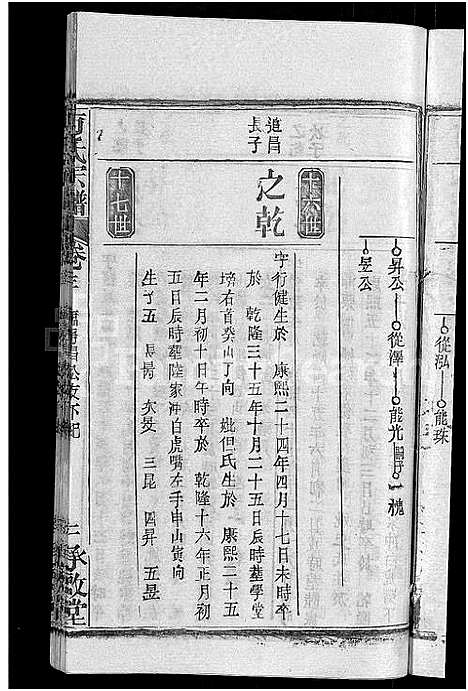 從泓 能珠
昇公 從澤 能光 嗣子 一槐
昱公
十六世
之乾
追昌
長子
十七世
字行健生於 康熙二十四年四月十七日未時卒
於 乾隆三十五年十月二十五日辰時葬學堂
塆右首癸山丁向 妣但氏生於 康熙二十五
年二月初十日午時卒於 乾隆十六年正月初
五日辰時葬陸家沖白虎嘴左手申山寅向
生子五 長 次旻 三昆 四昇 五昱
氏宗譜 卷三
三 承啟堂